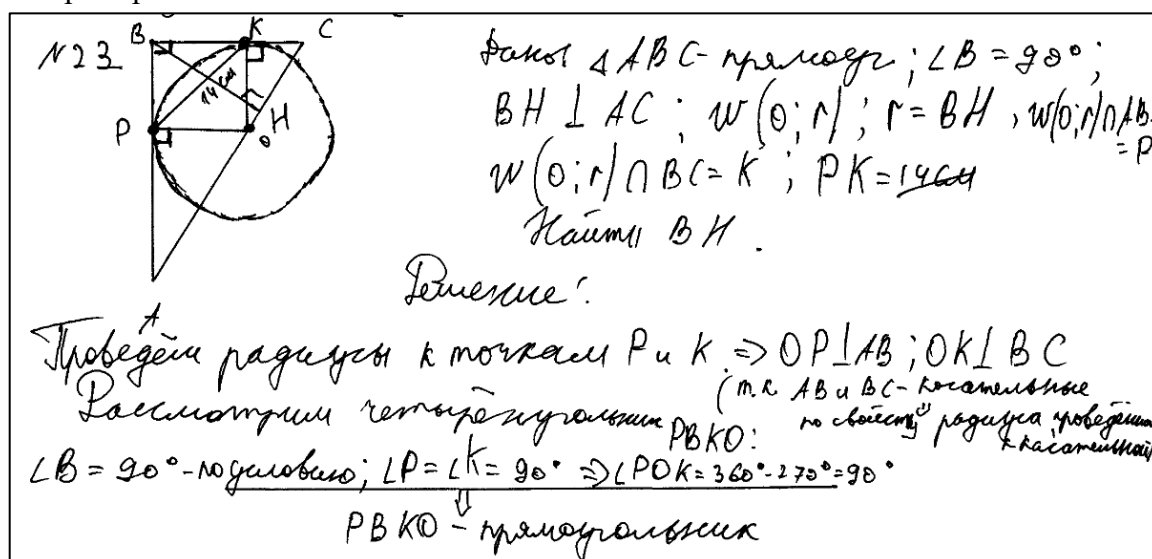 N23
B K C
14см
P O H
A
Дано: △ABC-прямоуг; ∠B = 90°;
BH ⊥ AC; w(O; r); r = BH, w(O; r) ∩ AB = P
w(O; r) ∩ BC = K; PK = 14см
Найти BH.
Решение:
Проведём радиусы к точкам P и K ⇒ OP ⊥ AB; OK ⊥ BC
(т.к AB и BC - касательные
по свойству радиуса проведённого к касательной)
Рассмотрим четырёхугольник PBKO:
∠B = 90° - по условию; ∠P = ∠K = 90° ⇒ ∠POK = 360° - 270° = 90°
⇓
PBKO - прямоугольник